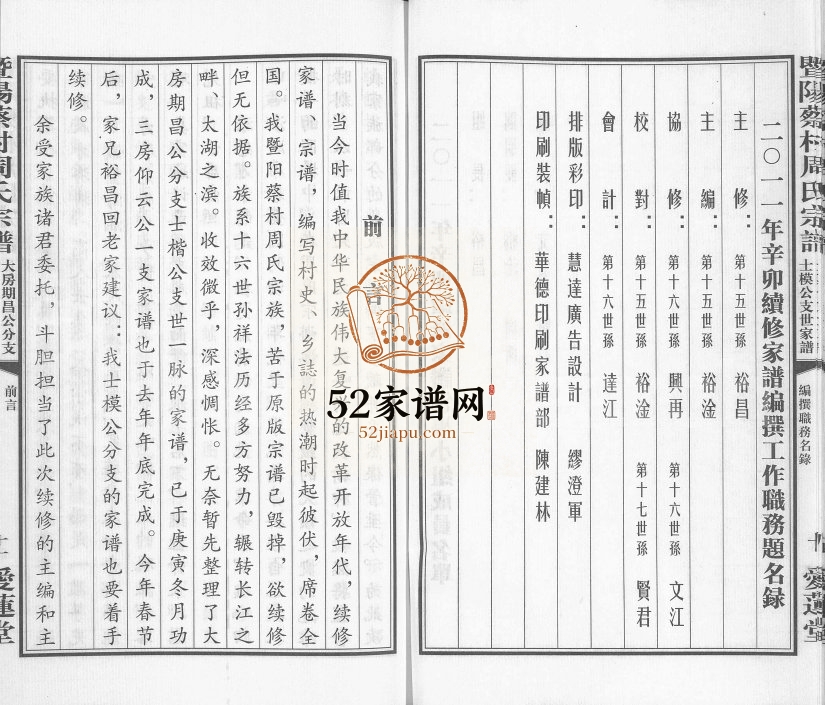 暨陽蔡村周氏宗譜
士模公支世家譜
編撰職務名錄
愛蓮堂
二〇一一年辛卯續修家譜編撰工作職務題名錄
主修：第十五世孫 裕昌
主編：第十五世孫 裕淦
協修：第十六世孫 興再 第十六世孫 文江
校對：第十五世孫 裕淦 第十七世孫 賢君
會計：第十六世孫 達江
排版彩印：慧達廣告設計 繆澄軍
印刷裝幀：華德印刷家譜部 陳建林
前言
当今时值我中华民族伟大复兴的改革开放年代，续修
家谱、宗谱，编写村史、乡誌的热潮时起彼伏，席卷全
国。我暨阳蔡村周氏宗族，苦于原版宗谱已毁掉，欲续修
但无依据。族系十六世孙祥法历经多方努力，辗转长江之
畔、太湖之滨。收效微乎，深感惆怅。无奈暂先整理了大
房期昌公分支士楷公支世一脉的家谱，已于庚寅冬月功
成，三房仰云公一支家谱也于去年年底完成。今年春节
后，家兄裕昌回老家建议：我士模公分支的家谱也要着手
续修。
余受家族诸君委托，斗胆担当了此次续修的主编和主
暨陽蔡村周氏宗譜
大房期昌公分支
前言
愛蓮堂
52家谱网
52jiapu.com